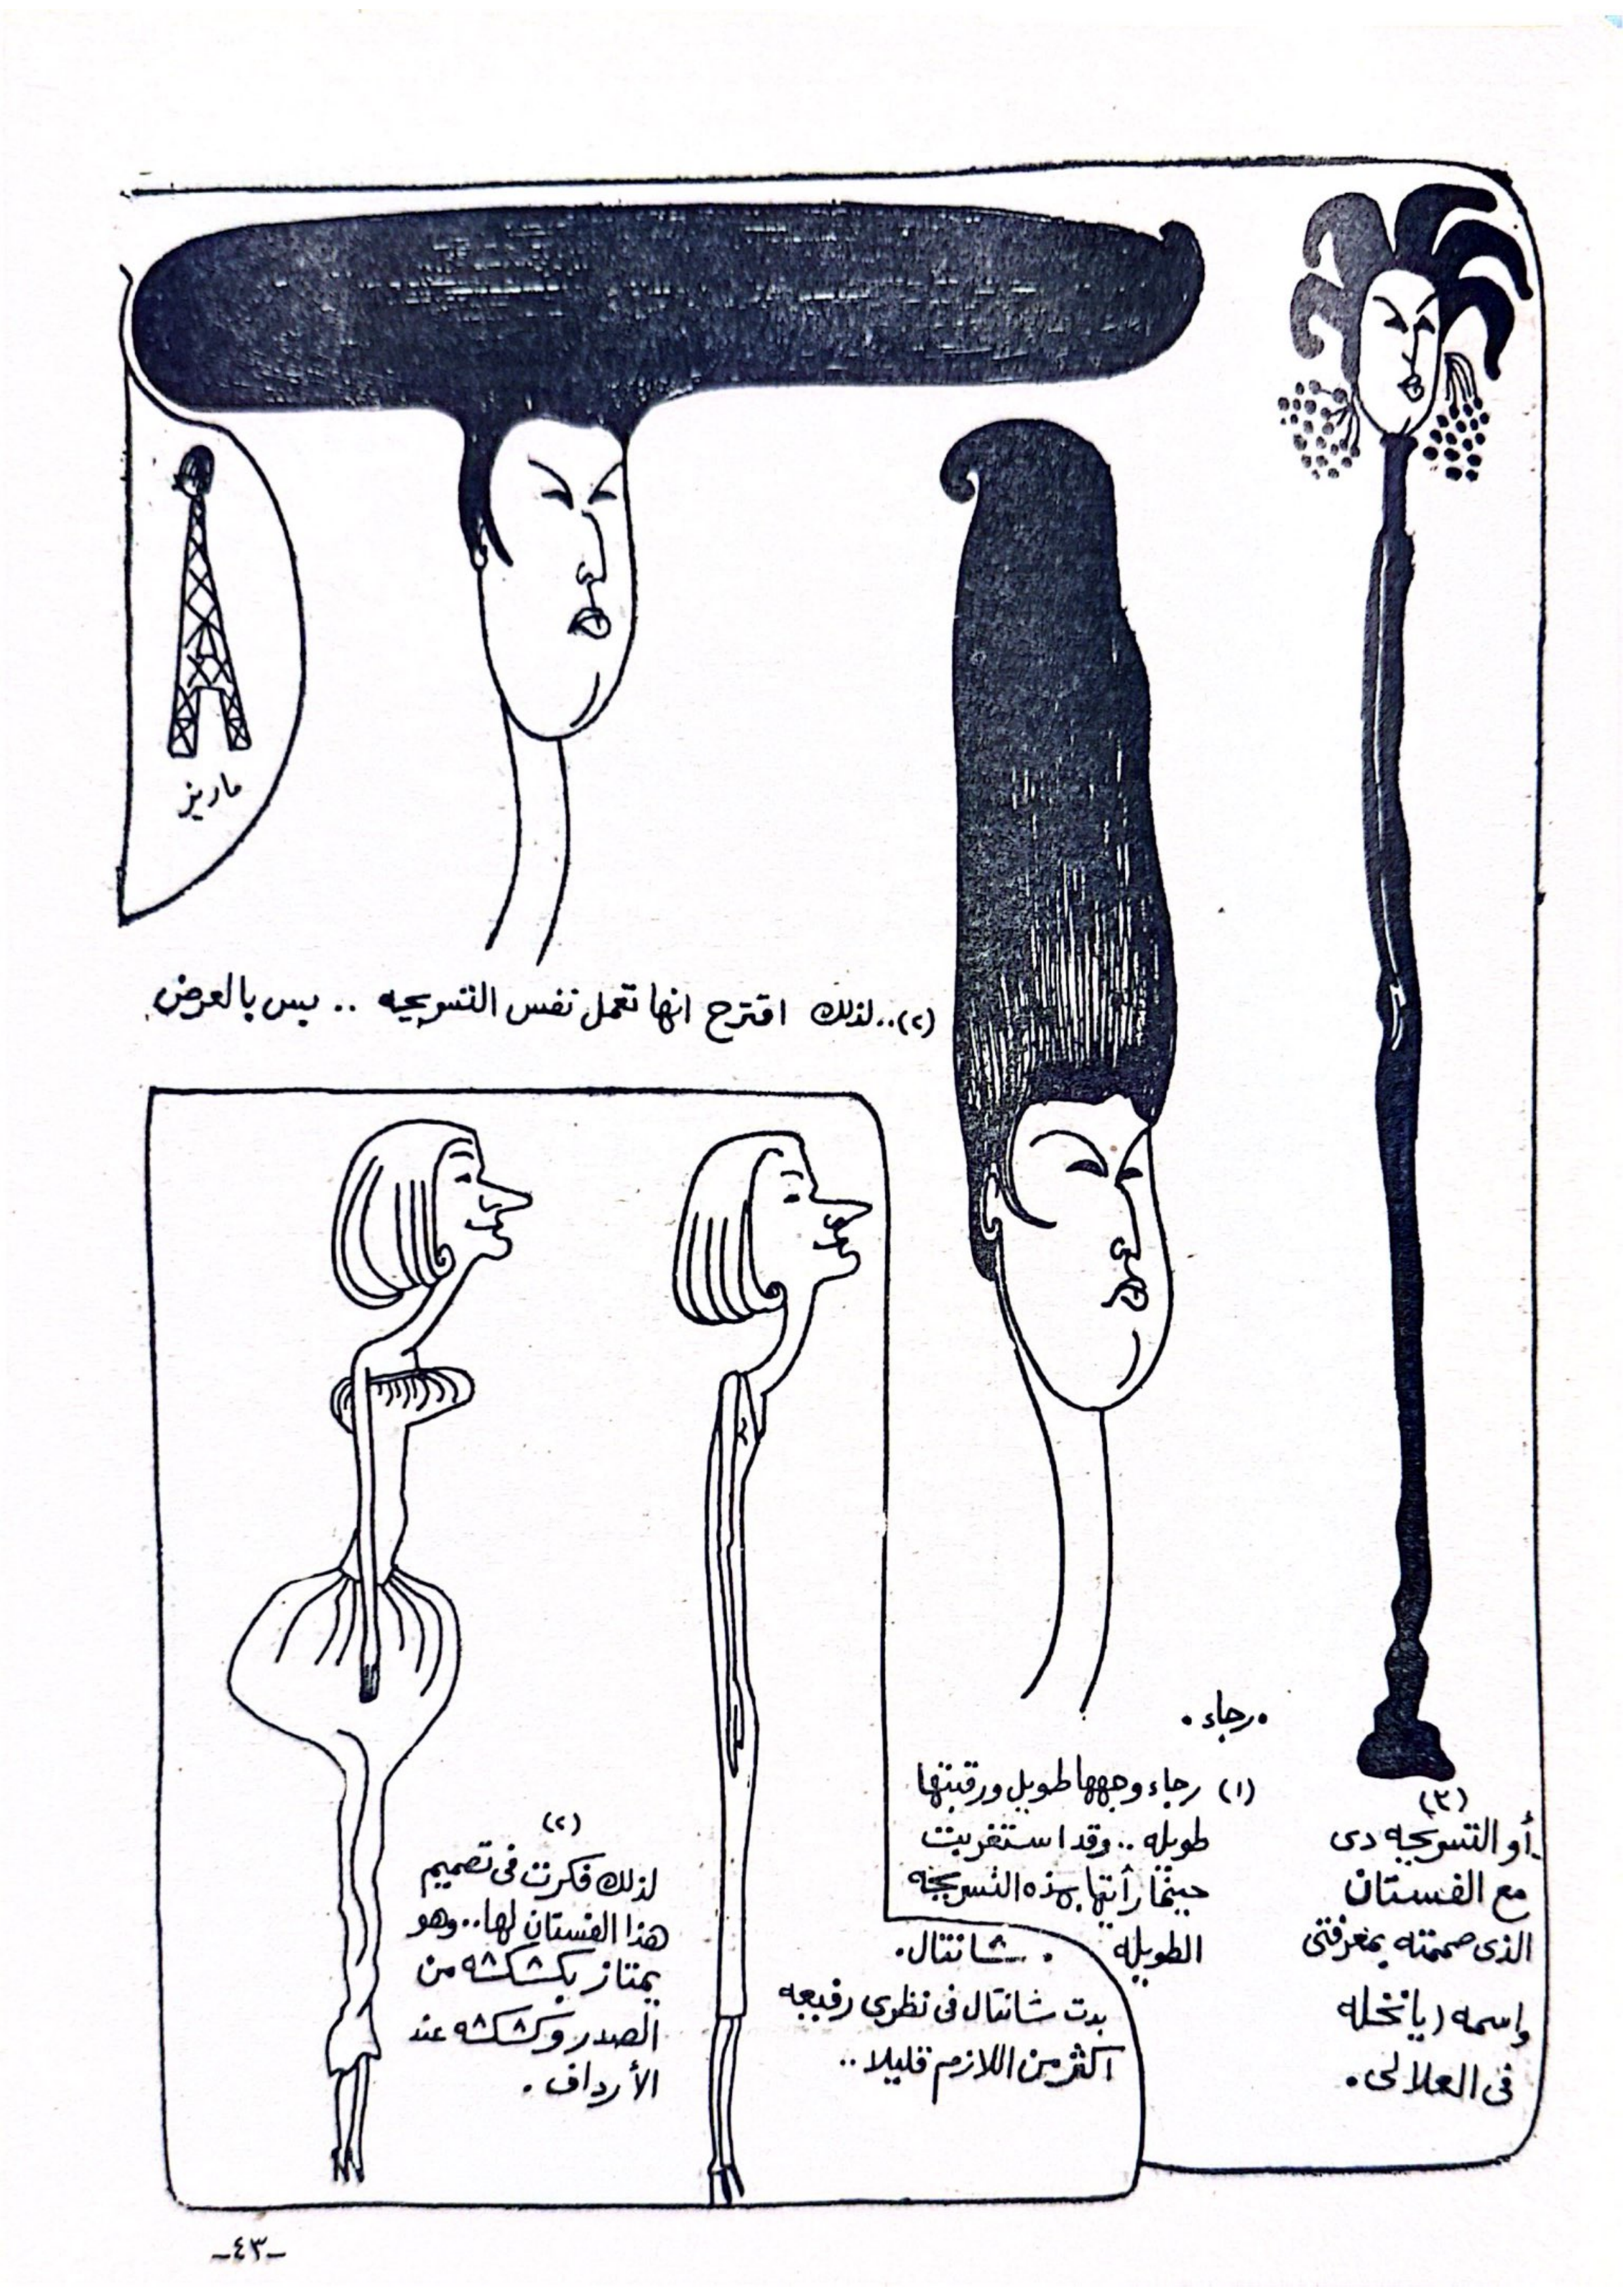 ماريز
(٢)..لذلك اقترح انها تعمل نفس التسريحه .. بس بالعرض
• رجاء •
(١) رجاء وجهها طويل ورقبتها
طويله .. وقد استغربت
حينما رأيتها بهذه التسريحه
الطويله
(٣)
أو التسريحه دى
مع الفستان
الذى صممته بمعرفتى
واسمه (يا نخله
فى العلالى .
• شانتال •
بدت شانتال فى نظرى رفيعه
اكثر من اللازم قليلا ..
(٢)
لذلك فكرت فى تصميم
هذا الفستان لها .. وهو
يمتاز بكشكشه من
الصدر وكشكشه عند
الأرداف .
-٤٣-